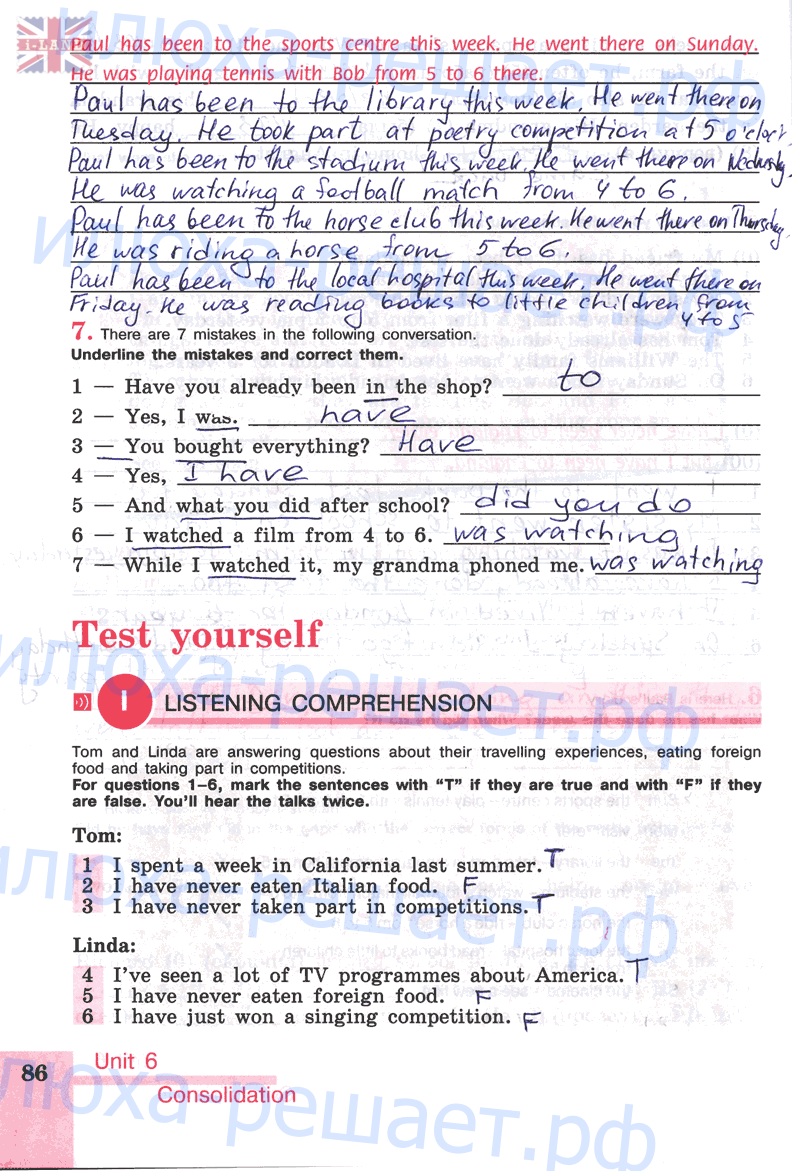 i-LAN
Paul has been to the sports centre this week. He went there on Sunday.
He was playing tennis with Bob from 5 to 6 there.
Paul has been to the library this week. He went there on
Tuesday. He took part at poetry competition at 5 o'clock
Paul has been to the stadium this week. He went there on Wednesday.
He was watching a football match from 4 to 6.
Paul has been to the horse club this week. He went there on Thursday
He was riding a horse from 5 to 6.
Paul has been to the local hospital this week. He went there on
Friday. He was reading books to little children from
4 to 5
7. There are 7 mistakes in the following conversation.
Underline the mistakes and correct them.
1 — Have you already been in the shop? to
2 — Yes, I was. have
3 — You bought everything? Have
4 — Yes, I have
5 — And what you did after school? did you do
6 — I watched a film from 4 to 6. was watching
7 — While I watched it, my grandma phoned me. was watching
Test yourself
I LISTENING COMPREHENSION
Tom and Linda are answering questions about their travelling experiences, eating foreign
food and taking part in competitions.
For questions 1–6, mark the sentences with “T” if they are true and with “F” if they
are false. You’ll hear the talks twice.
Tom:
1 I spent a week in California last summer. T
2 I have never eaten Italian food. F
3 I have never taken part in competitions. T
Linda:
4 I’ve seen a lot of TV programmes about America. T
5 I have never eaten foreign food. F
6 I have just won a singing competition. F
86 Unit 6
Consolidation
илюха-решает.рф
илюха-решает.рф
илюха-решает.рф
илюха-решает.рф
илюха-решает.рф